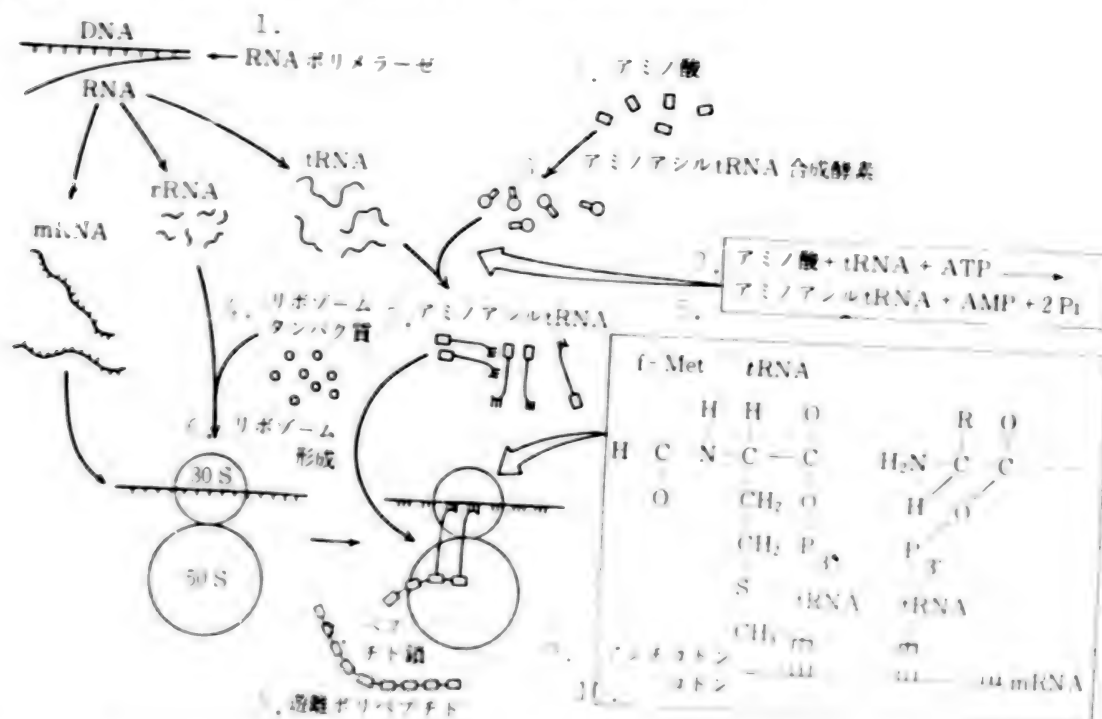 1.
DNA
RNAポリメラーゼ
RNA
アミノ酸
アミノアシルtRNA合成酵素
tRNA
rRNA
mRNA
アミノ酸 + tRNA + ATP
アミノアシルtRNA + AMP + 2Pi
リボゾーム
タンパク質
アミノアシルtRNA
リボゾーム
形成
30S
50S
f-Met tRNA
H H O
H C N C C
O CH₂ O
CH₂ P 3'
S tRNA
R O
H₂N C C
H O
P 3'
tRNA
チド鎖
遊離ポリペプチド
アンチコドン
コドン
mRNA